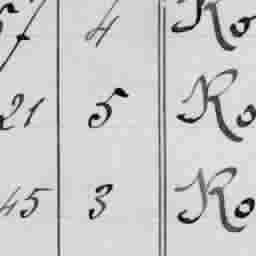 57 4 Ko
21 5 Ko
45 3 Ko